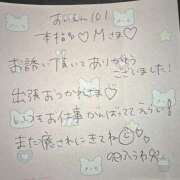 あいあい101
本指名♡Mさま♡
お誘い頂いてありがとう
ございました！
出張おつかれさま♡
いつもお仕事がんばっててえらい！
また癒されにきてね♡
ゆうか